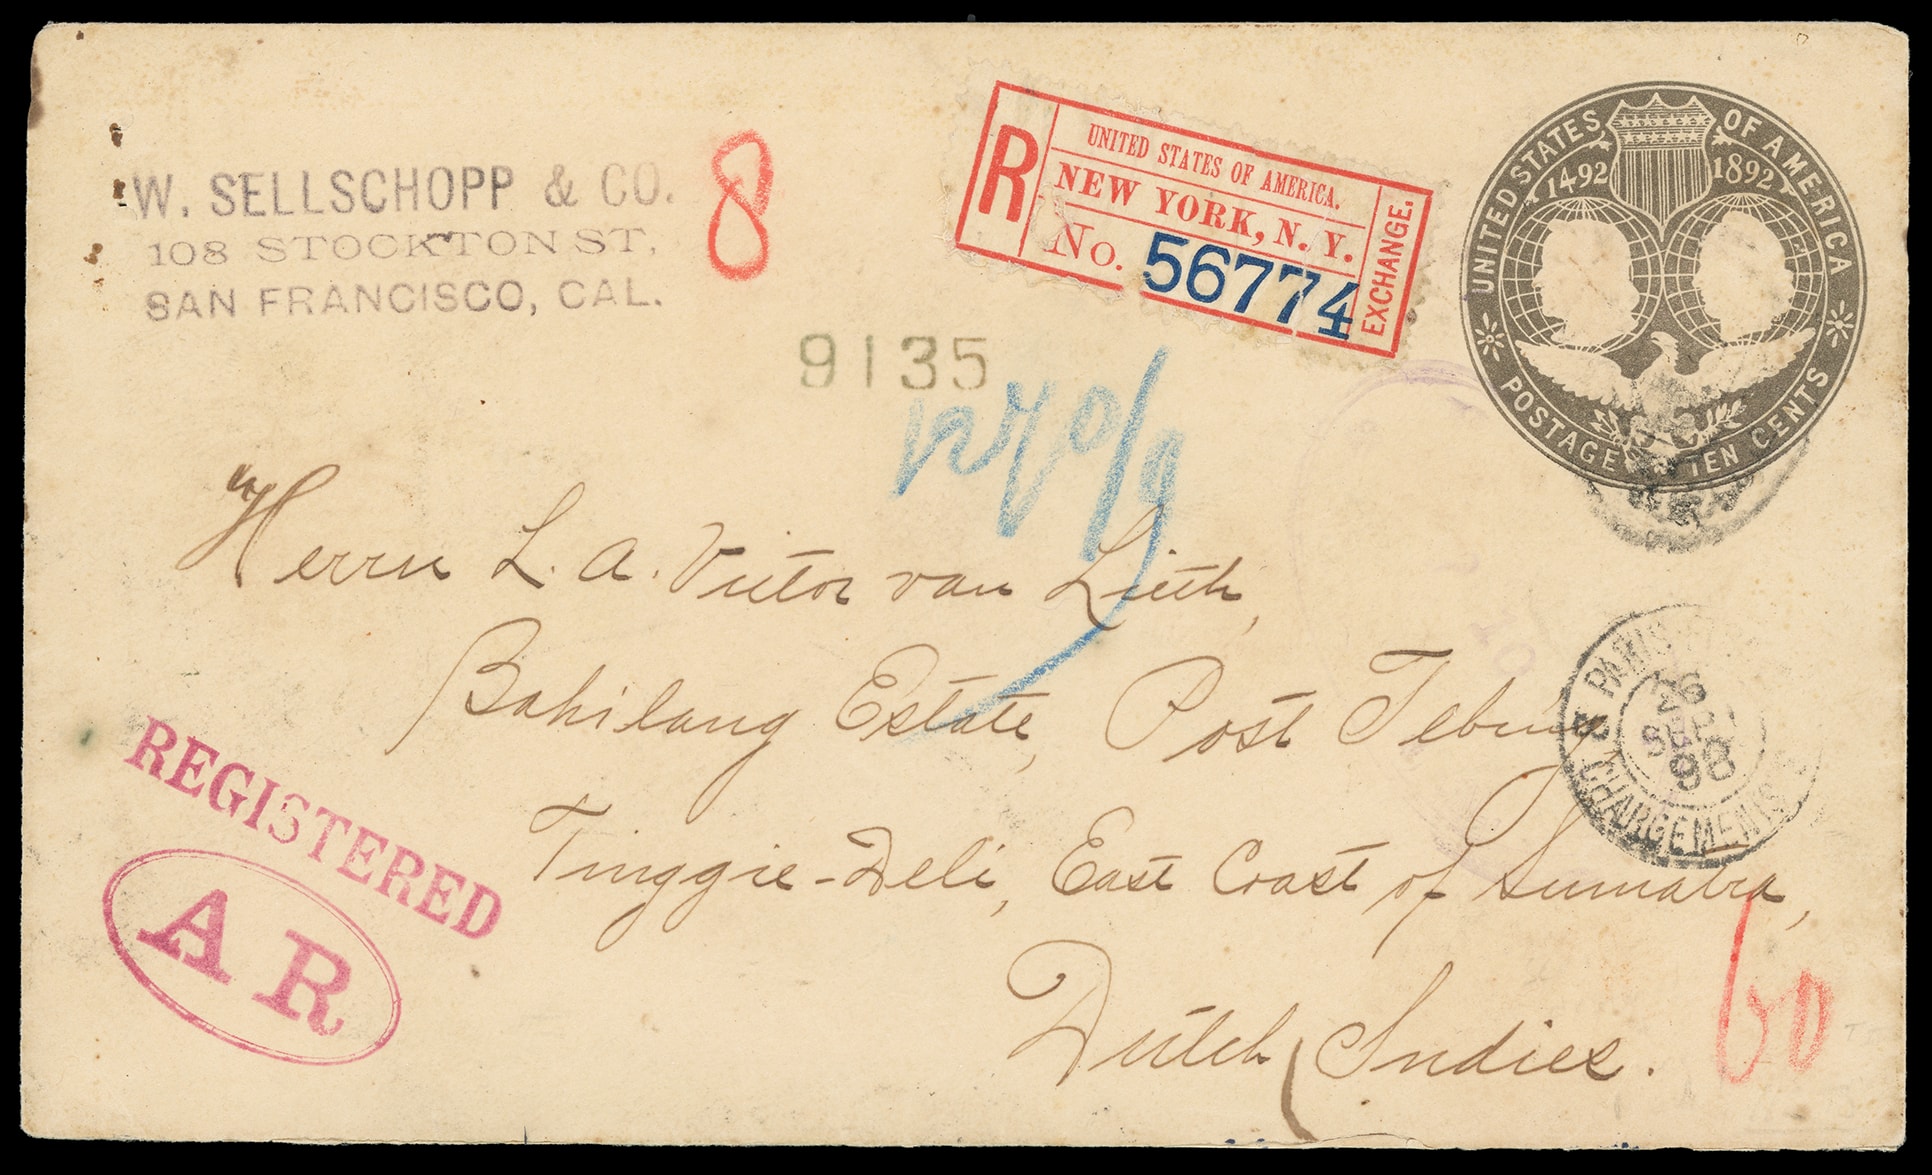 W. SELLSCHOPP & CO.
108 STOCKTON ST,
SAN FRANCISCO, CAL.
8
R
UNITED STATES OF AMERICA.
NEW YORK, N. Y.
No. 56774
EXCHANGE.
UNITED STATES OF AMERICA
1492 1892
POSTAGE TEN CENTS
9135
Herrn L. A. Victor van Lieth,
Bahilang Estate, Post Tebing
Tinggie-Deli, East Coast of Sumatra,
Dutch Indies.
PARIS
26
SEPT
98
CHARGEMENTS
REGISTERED
A R
60